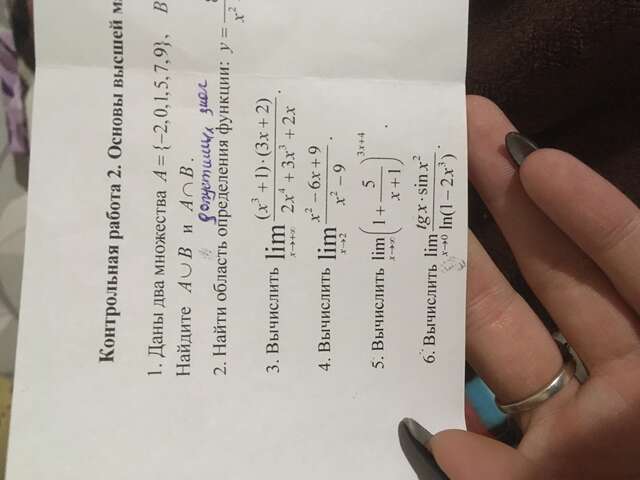 Контрольная работа 2. Основы высшей
1. Даны два множества A = {−2, 0, 1, 5, 7, 9}, B
Найдите A ∪ B и A ∩ B.
допустимых знач
2. Найти область определения функции: y = 8/x²
3. Вычислить lim x→+∞ (x³ + 1)·(3x + 2) / 2x⁴ + 3x³ + 2x .
4. Вычислить lim x→2 x² − 6x + 9 / x² − 9 .
5. Вычислить lim x→∞ (1 + 5/x + 1)³ˣ⁺⁴ .
6. Вычислить lim x→0 tg x · sin x² / ln(1 − 2x³) .